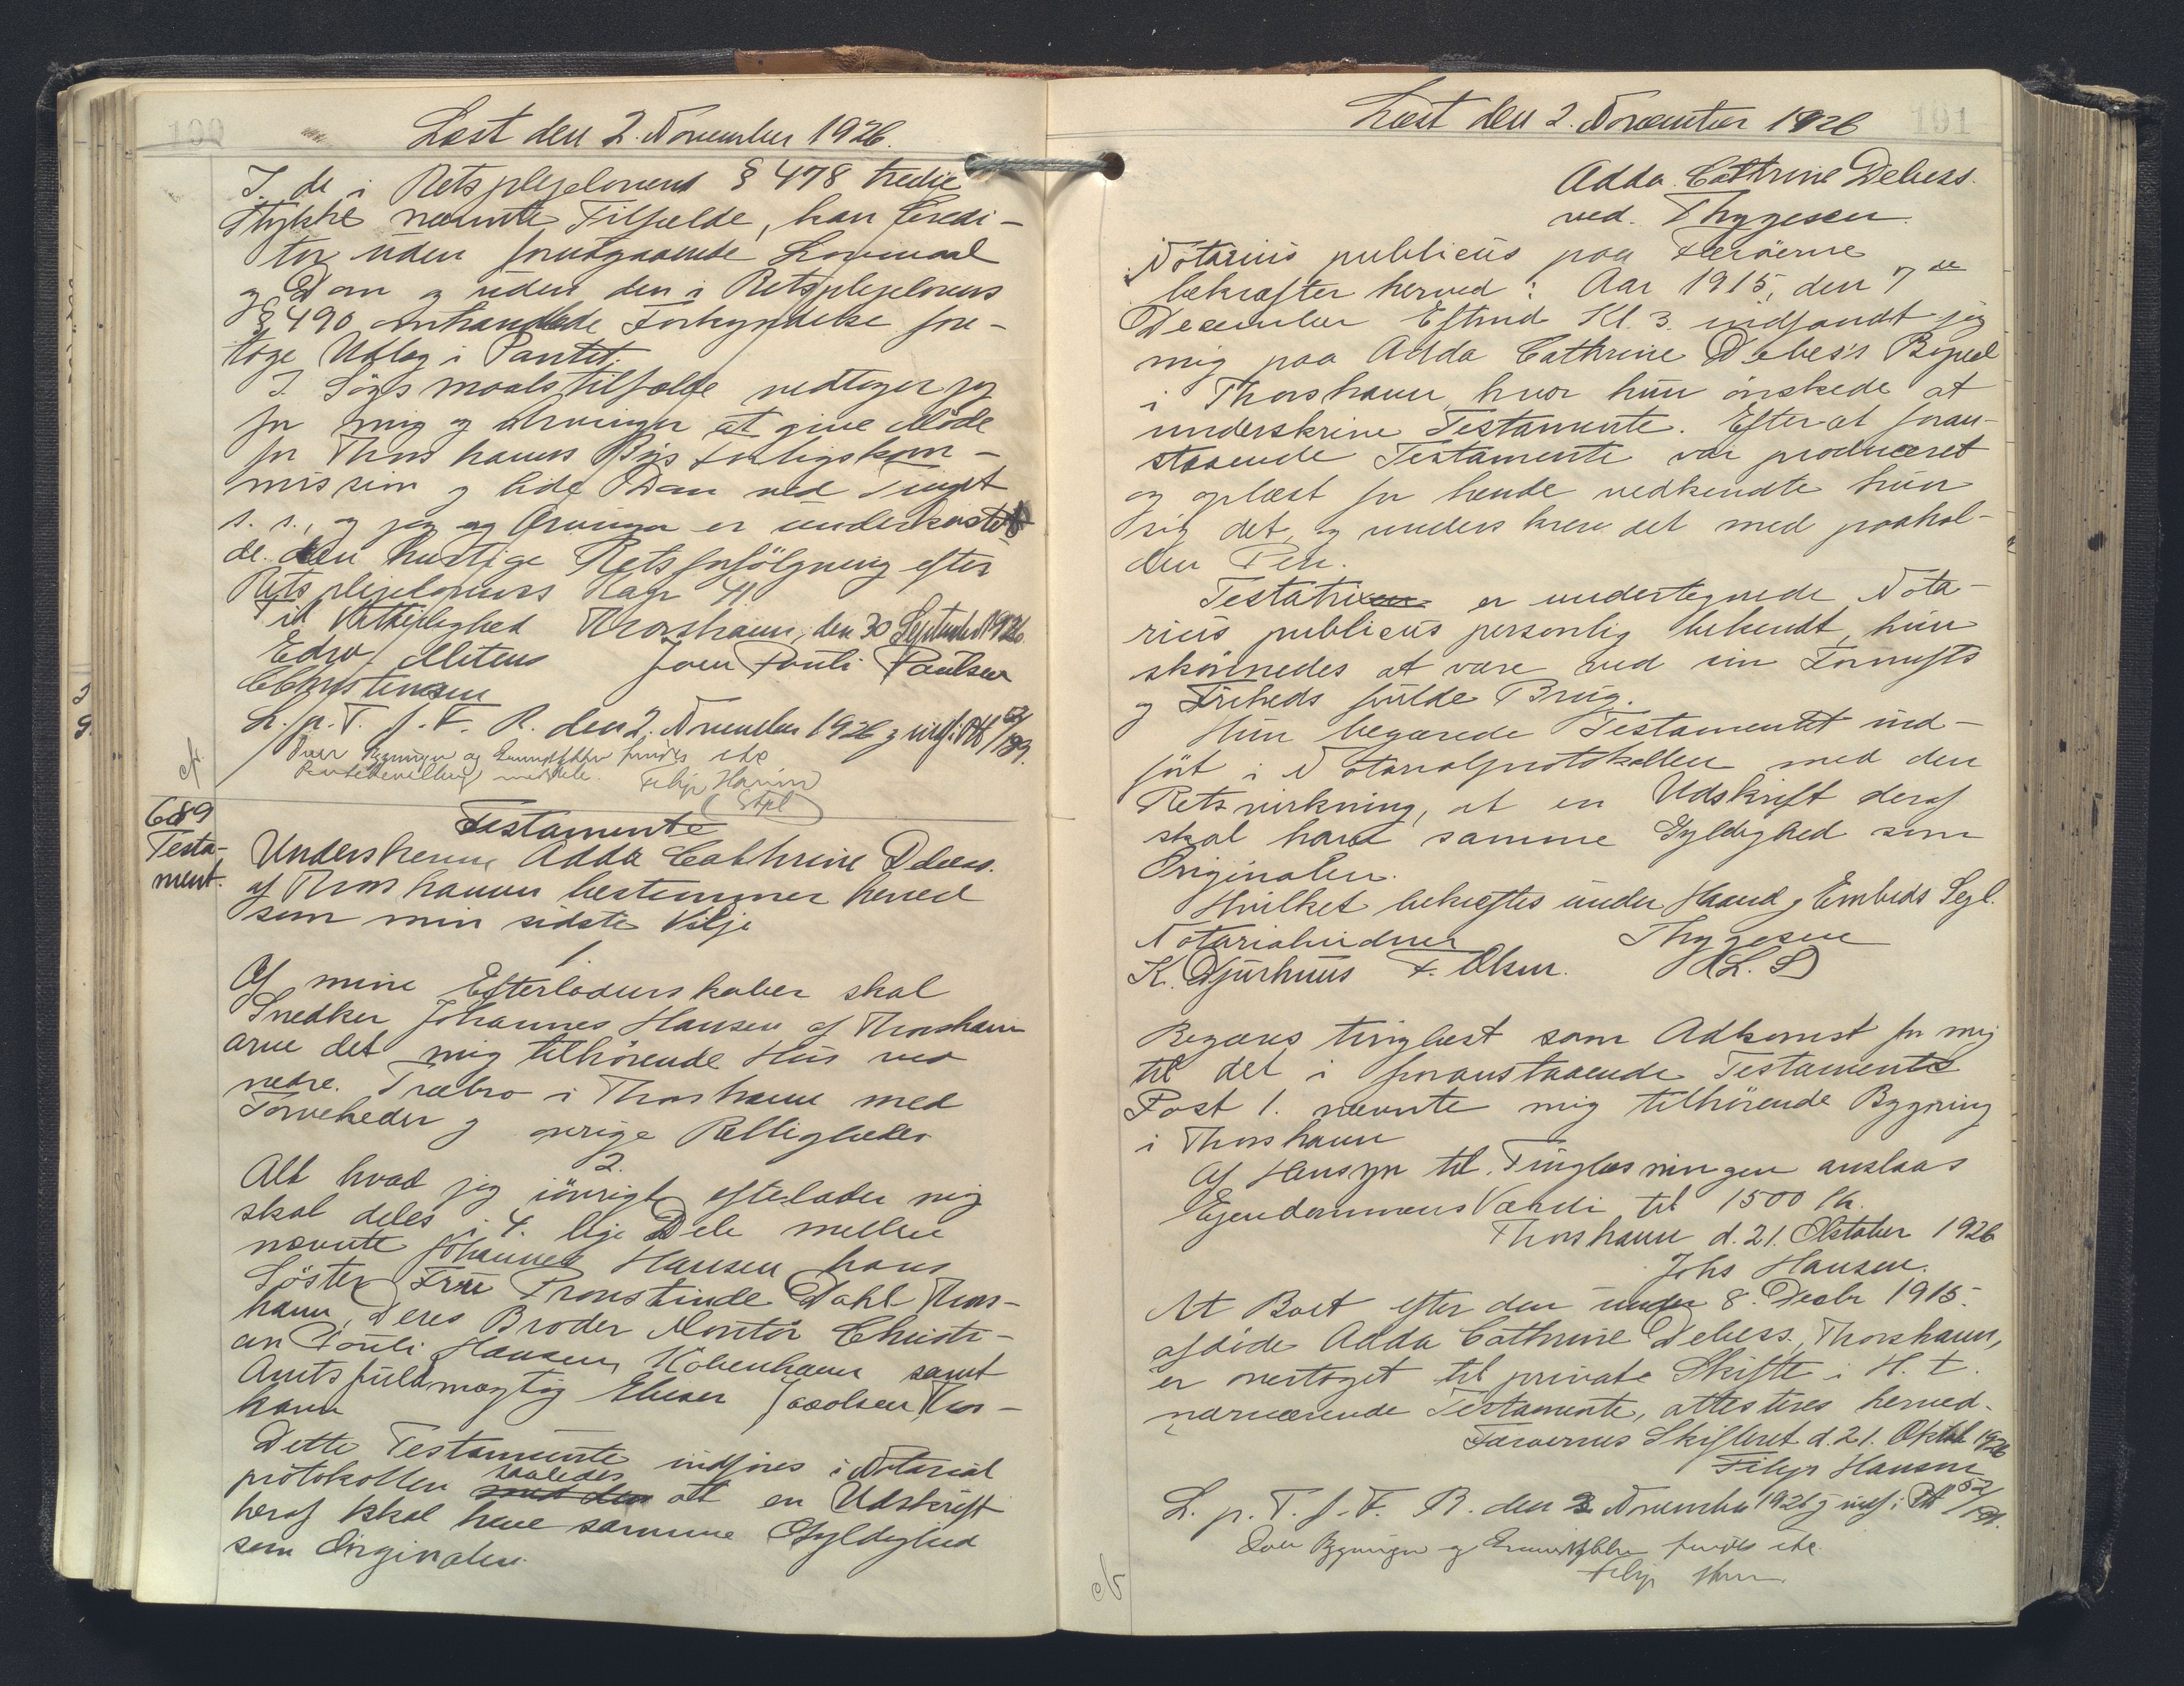 100
Læst den 2. November 1926.
I de i Retsplejelovens § 478 tredie
Stykke nævnte Tilfælde, kan Kredi-
tor uden forudgaaende Lovmaal
og Dom og uden den i Retsplejelovens
§ 490 omhandlede Forkyndelse fore-
tage Udlæg i Pantet.
I Søgsmaalstilfælde vedtager jeg
for mig og Arvinger at give Møde
for Thorshavns Bys Forligskom-
mission og lide Dom ved Tinget
s. s., og jeg og Arvinger er underkastet
de den hurtige Retsforfölgning efter
Retsplejelovens Kap 41
Til Vitterlighed Thorshavn, den 30 September 1926
Edw. Mitens Joen Pouli Poulsen
C Christensen
L. p. T. f. F. R. den 2. November 1926 og indf. i Ptb 52/189.
Over Bygninger og Grundstykker findes ikke
meddelt. Filip Hansen
(Stpl)
689
Testa-
ment.
Testamente
Underskrevne, Adda Cathrine Debess.
af Thorshavn bestemmer herved
som min sidste Vilje
1.
Af mine Efterladenskaber skal
Snedker Johannes Hansen af Thorshavn
arve det mig tilhörende Hus ved
nedre. Træbro i Thorshavn med
Tørveheder og øvrige Rettigheder
2.
Alt hvad jeg iövrigt efterlader mig
skal deles i 4. lige Dele mellem
nævnte Johannes Hansen hans
Söster Fru Pronstinde Dahl Thors-
havn, Deres Broder Montör Christi-
an Pouli Hansen, Köbenhavn samt
Amtsfuldmægtig Ebeser Jacobsen Thors-
havn
Dette Testamente indföres i Notarial
protokollen saaledes med den at en Udskrift
heraf skal have samme Gyldighed
som Originalen.
101
Læst den 2. November 1926
Adda Cathrine Debess.
ved. Thygesen.
Notarius publicus paa Færöerne
bekræfter herved: Aar 1915, den 7 de
December Eftmd Kl. 3. indfandt jeg
mig paa Adda Cathrine Debes's Bopæl
i Thorshavn, hvor hun önskede at
underskrive Testamente. Efter at foran-
staaende Testamente var produceret
og oplæst for hende vedkendte hun
sig det, og underskrev det med paahol-
den Pen.
Testatrixen er undertegnede Nota-
rius publicus personlig bekendt, hun
skönnedes at være ved sin Fornufts
og Friheds fulde Brug.
Hun begærede Testamentet ind-
fört i Notarialprotokollen med den
Retsvirkning, at en Udskrift deraf
skal have samme Gyldighed som
Originalen.
Hvilket bekræftes under Haand og Embeds Segl.
Notarialvidner Thygesen
K. Djurhuus F. Olsen. (L. S)
Begæres tinglæst som Adkomst for mig
til det i foranstaaende Testamente
Post 1. nævnte mig tilhörende Bygning
i Thorshavn
Af Hensyn til Tinglæsningen anslaas
Ejendommens Værdi til 1500 Kr.
Thorshavn d. 21. Oktober 1926
Johs Hansen.
At Boet efter den under 8. Decbr 1915.
afdöde Adda Cathrine Debess, Thorshavn,
er overtaget til private Skifte i H. t.
nærværende Testamente, attesteres herved.
Færoernes Skifteret d. 21. Oktob 1926
Filip Hansen
L. p. T. f. F. R. den 2 November 1926 og indf. i Ptb 52/191.
Over Bygninger og Grundstykker findes ikke.
Filip Hansen